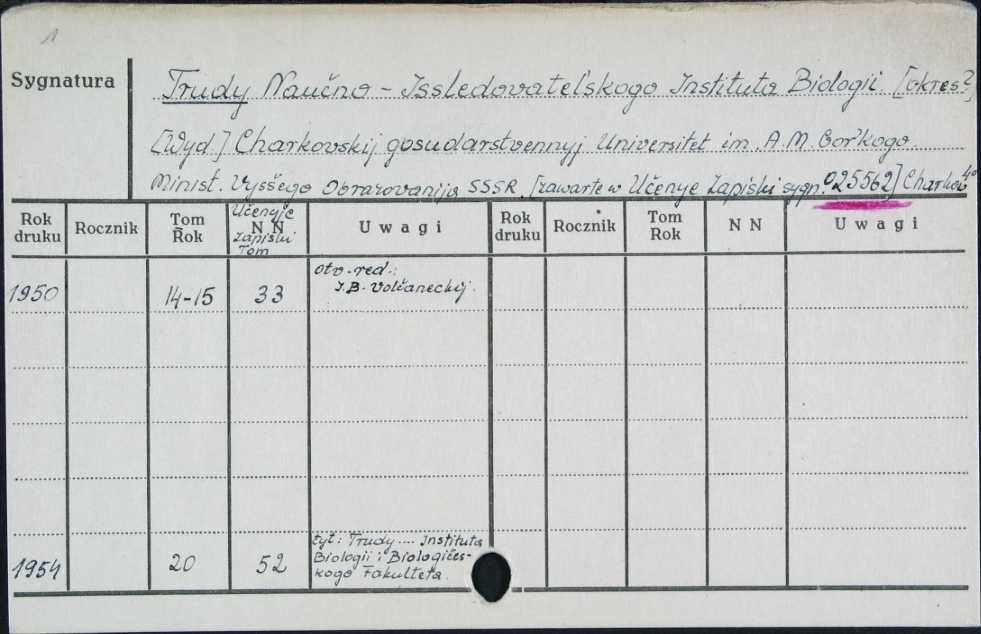 1
Sygnatura
Trudy Naučno - Issledovatel'skogo Instituta Biologii. [okres?]
[Wyd] Charkovskij gosudarstvennyj Universitet im. A.M. Gor'kogo.
Minist. Vysšego Obrazovanija SSSR. [zawarte w Učenye Zapiski sygn. 025562] Charkov 4°
Rok druku Rocznik Tom Rok Učenyje NN Zapiski Tom Uwagi Rok druku Rocznik Tom Rok NN Uwagi
1950 14-15 33 otv. red.: I.B. Volčaneckij.
1954 20 52 tyt: Trudy .... Instituta
Biologii i Biologičes-
kogo Fakulteta.